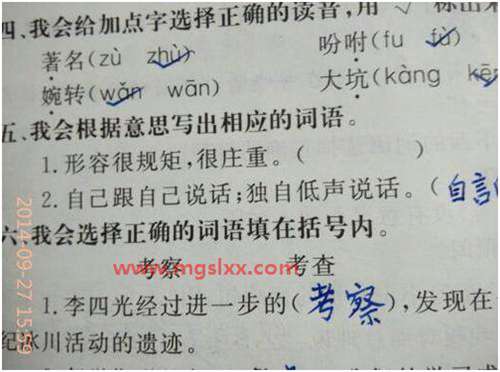 四、我会给加点字选择正确的读音,用 √ 标出来
著名(zù zhù) 吩咐(fu fù)
婉转(wǎn wān) 大坑(kàng kēn
五、我会根据意思写出相应的词语。
1.形容很规矩,很庄重。( )
2.自己跟自己说话;独自低声说话。(自言
六、我会选择正确的词语填在括号内。
考察 考查
www.mgslxx.com
1.李四光经过进一步的(考察),发现在
纪冰川活动的遗迹。
2014-09-27 15:59